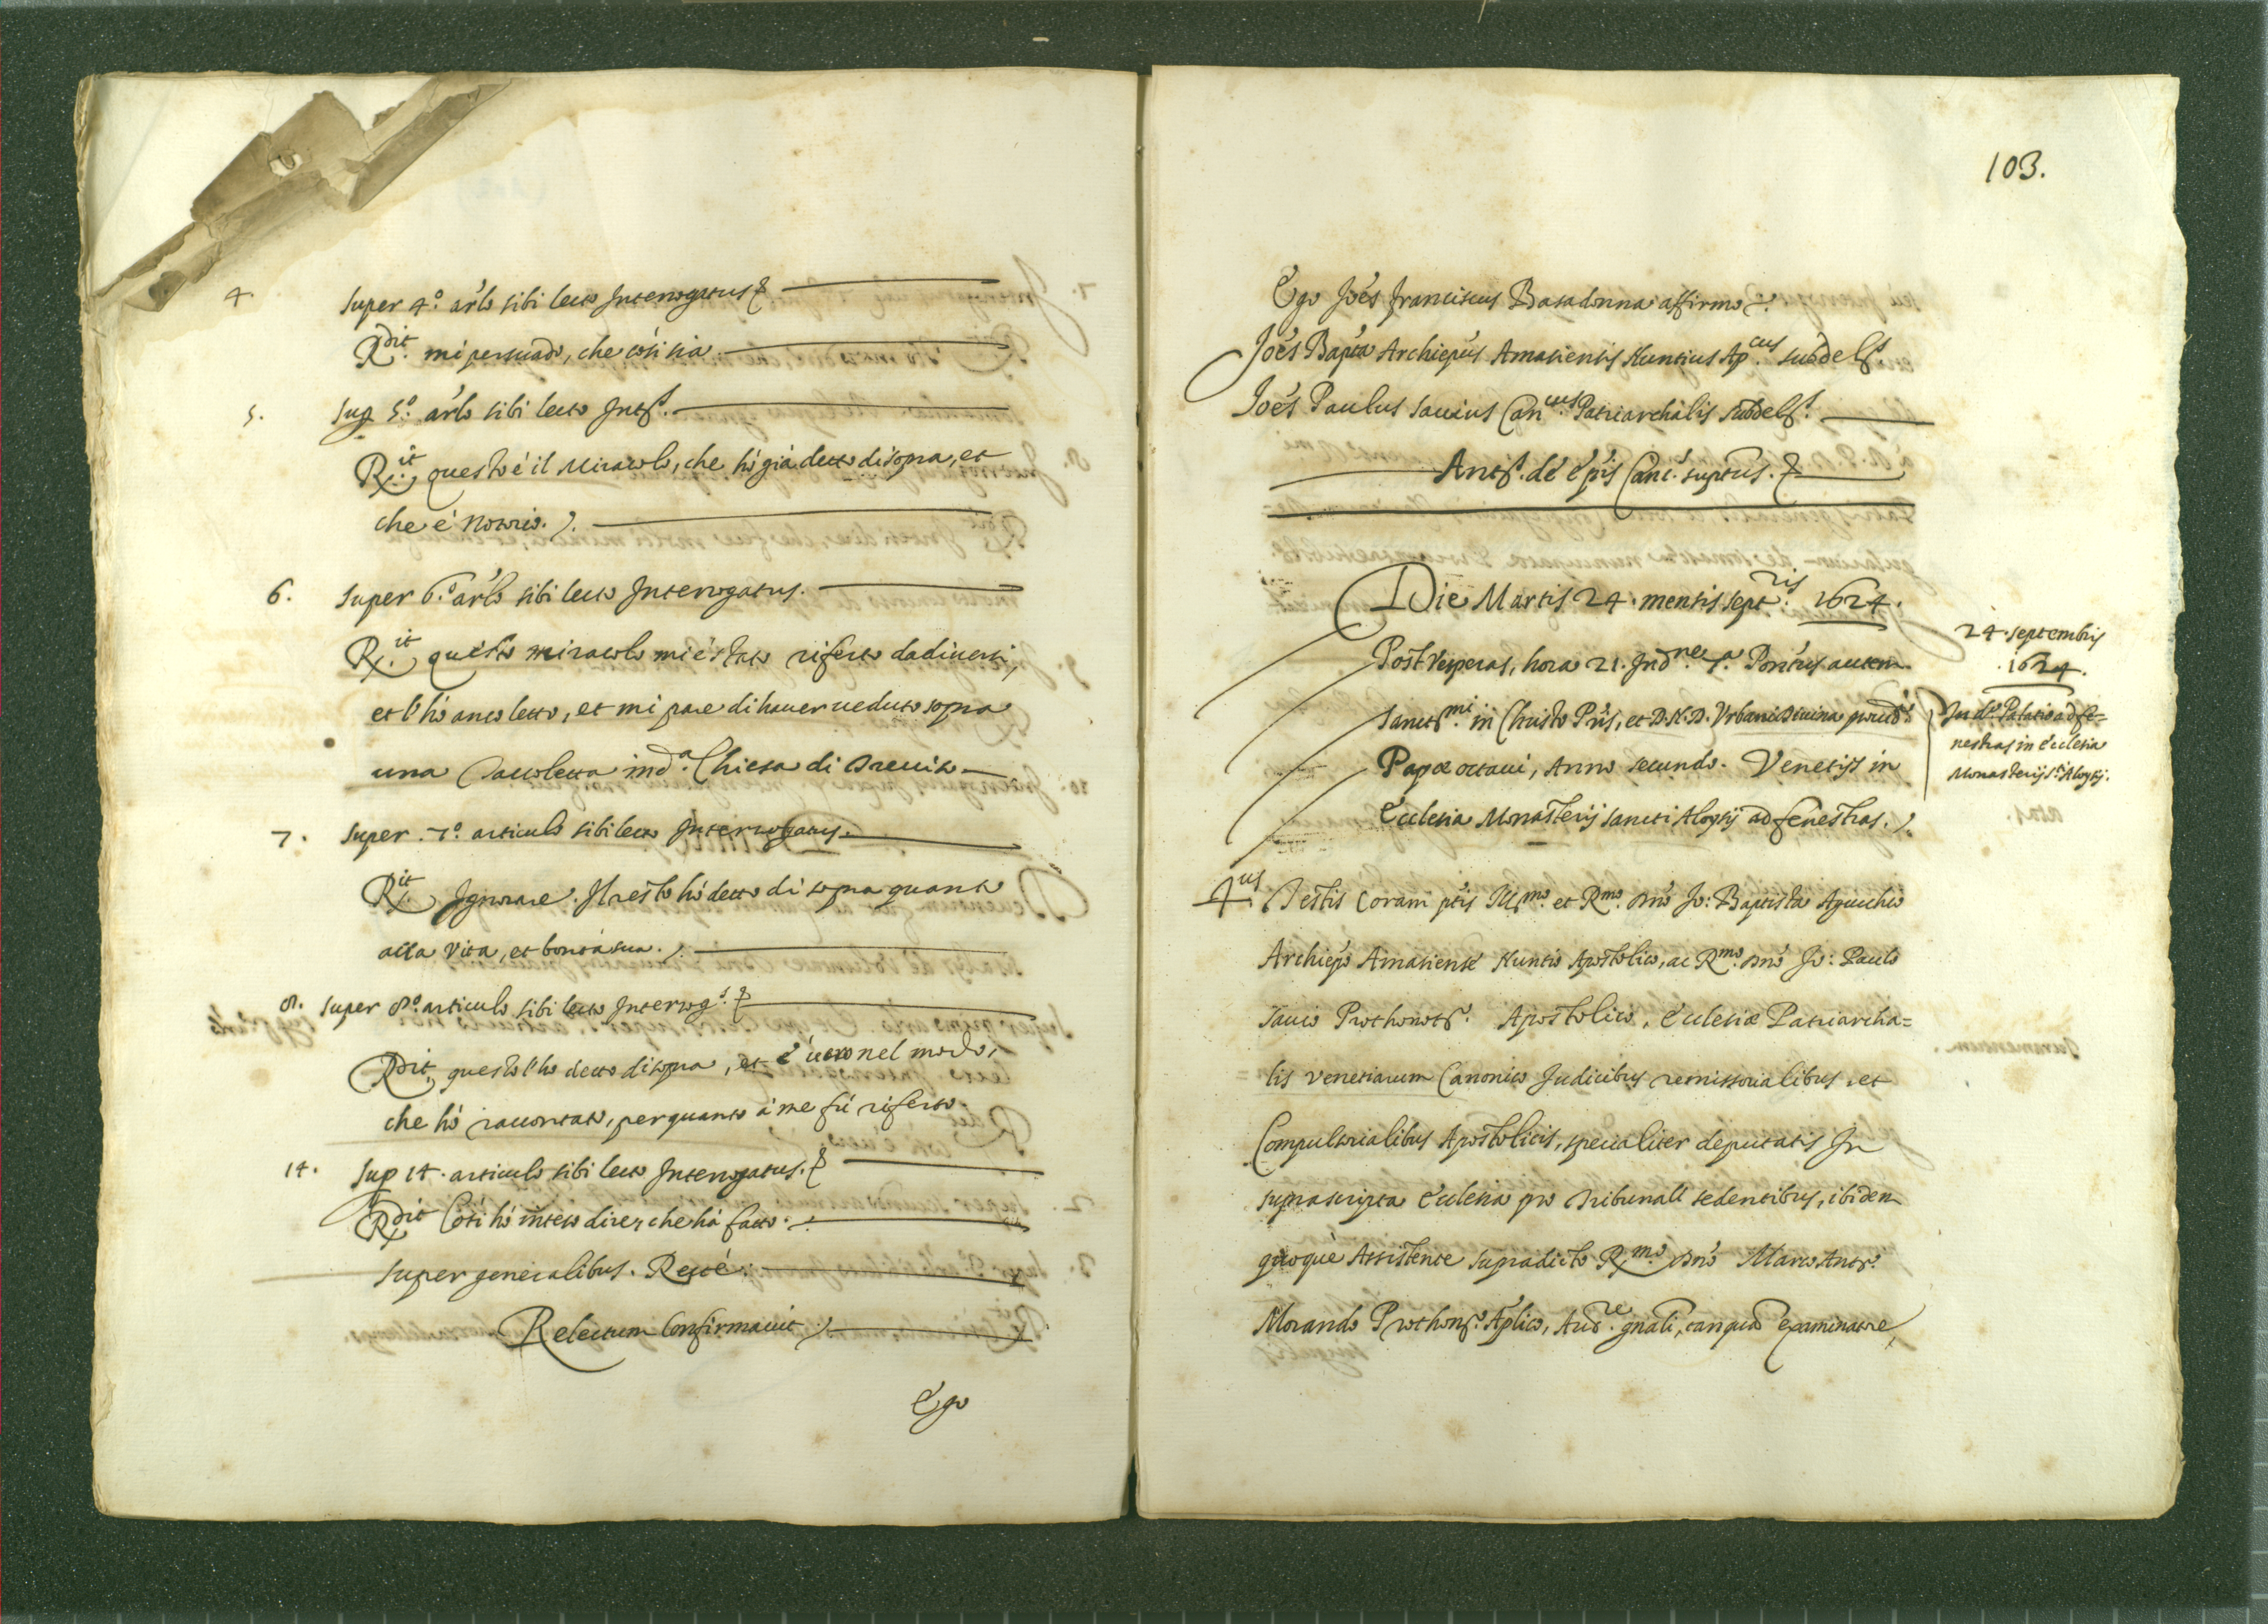 4. super 4.º arlo sibi lecto Interrogatus &
Rdit. mi persuado, che così sia.
5. sup 5.º arlo sibi lecto Intt.s
R.it questo è il Miracolo, che hò già detto di sopra, et
che è notorio.
6. super 6.º arlo sibi lecto Interrogatus.
R.it questo miracolo mi è stato riferto da diuersi,
et l'hò anco letto, et mi pare di hauer ueduto sopra
una Tauoletta in d.a Chiesa di Treuiso
7. super 7.º articulo sibi lecto Interrogatus.
R.it Ignorare. Il resto hò detto di sopra quanto
alla Vita, et bontà sua.
8. super 8.º articulo sibi lecto Interrog.s &
Rdit, questo l'ho detto di sopra, et è uero nel modo,
che hò raccontato, per quanto à me fù riferto.
14. sup 14. articulo sibi lecto Interrogatus. &
Rdit Così hò inteso dire, che hà fatto.
super generalibus. Recté.
Relectum Confirmauit
Ego
103.
Ego Joés franciscus Basadonna affirmo.
Joés Bapta Archiepus Amasiensis Nuntius Ap.cus subdel.s
Joés Paulus sauius Can.cus Patriarchalis subdel.s
Ant.s de épis Canc. suptus. &
Die Martis 24. mensis sept.ris 1624.
Post Vesperas, hora 21. Ind.ne 7.a Pontus autem
sanct.mi in Christo Pris, et D. N. D. Vrbani Diuina prouid.
Papæ octaui, Anno secundo. Venetijs in
Ecclesia Monasterij sancti Aloysij ad fenestras.
24. septembris
1624.
In d.o Palatio ad fe=
nestras in ecclesia
Monasterij s.ti Aloysij.
4.us Testis Coram ptis Ill.mo et R.mo Dno Jo: Baptista Agucchio
Archiepo Amasiense Nuntio Apostolico, ac R.mo Dno Jo: Paulo
sauio Prothonot.o Apostolico, Ecclesiæ Patriarcha=
lis Venetiarum Canonico Judicibus remissorialibus, et
Compulsorialibus Apostolicis, specialiter deputatis In
suprascripta Ecclesia pro Tribunali sedentibus, ibidem
quoquè Assistente supradicto R.mo Dno Marco Ant.o
Morando Prothon.o Aplico, Aud.re gnali, tanquam examinatore,